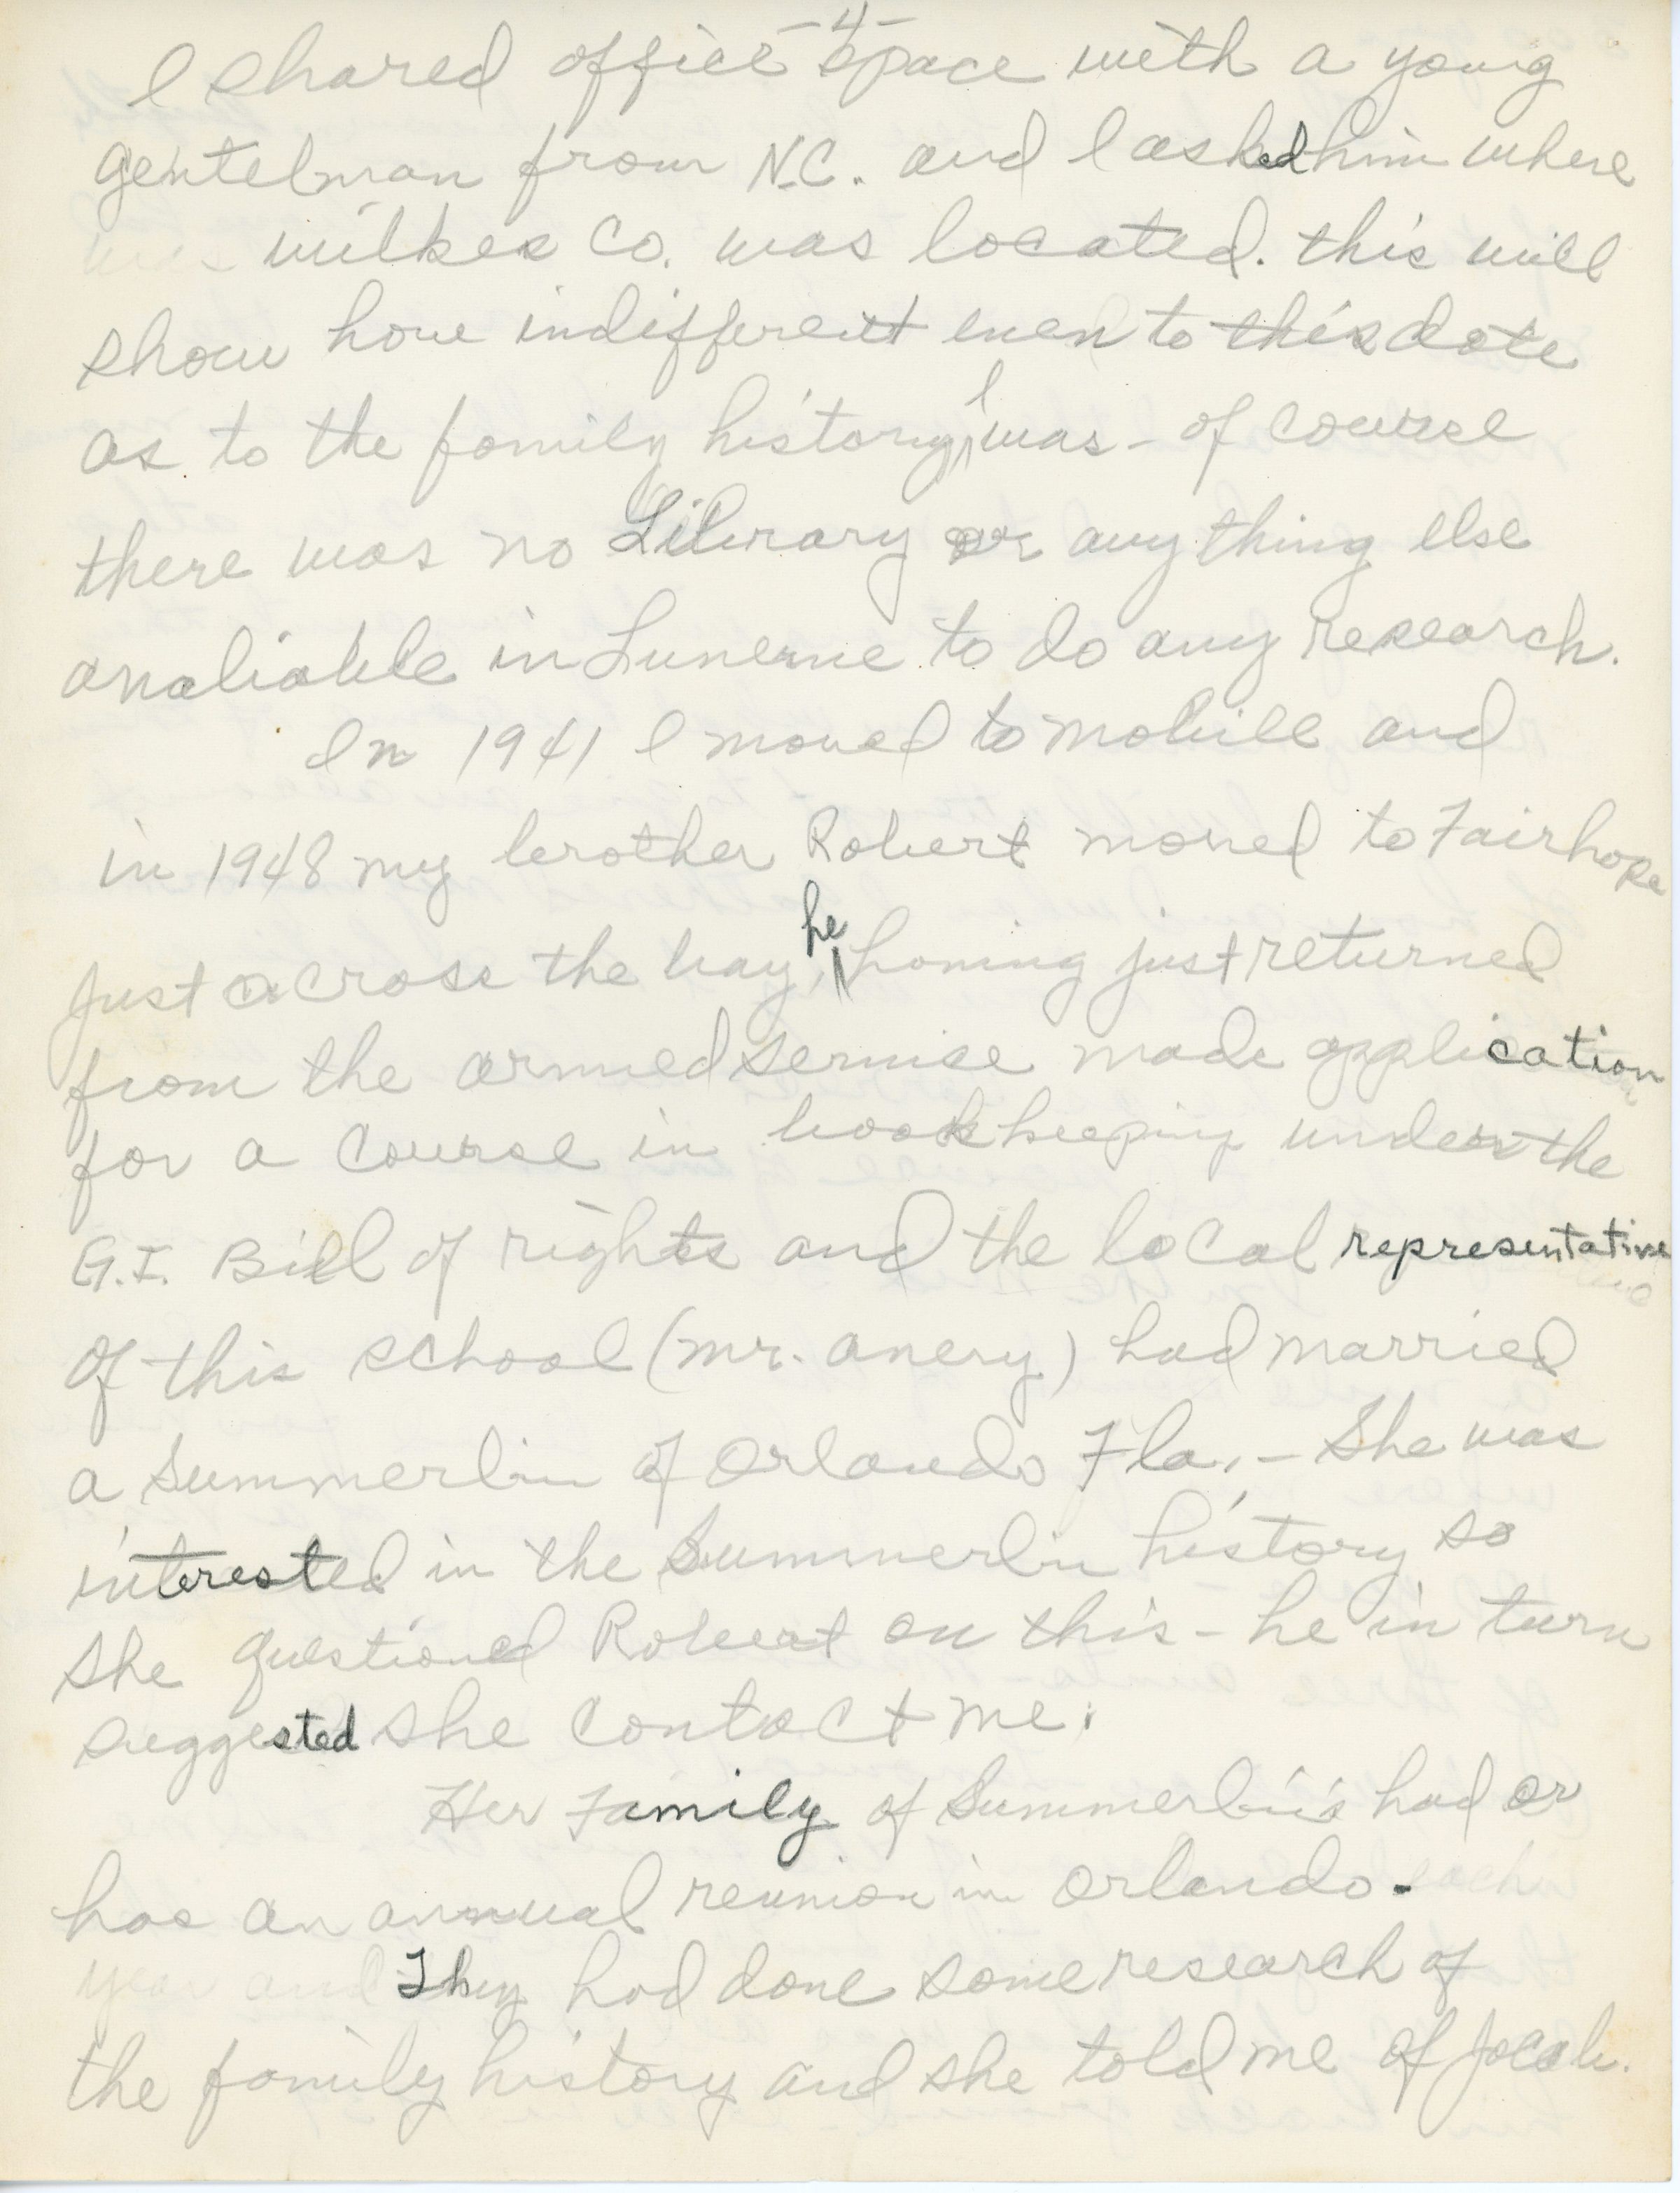 -4-
I shared office space with a young
gentelman from N.C. and I asked him where
wilkes Co. was located. this will
show how indifferent even to this date
as to the family history, I was - of course
there was no Library or anything else
avaliable in Luverne to do any research.
In 1941 I moved to mobile and
in 1948 my brother Robert moved to Fairhope
just across the bay, he having just returned
from the armed servise made application
for a course in bookkeeping under the
G.I. Bill of rights and the local representative
of this school (mr. avery) had married
a Summerlin of Orlando Fla. - She was
interested in the Summerlin history so
she questioned Robert on this - he in turn
suggested she contact me.
Her Family of Summerlin's had or
has an annual reunion in Orlando.
They had done some research of
the family history and she told me of Jacob.